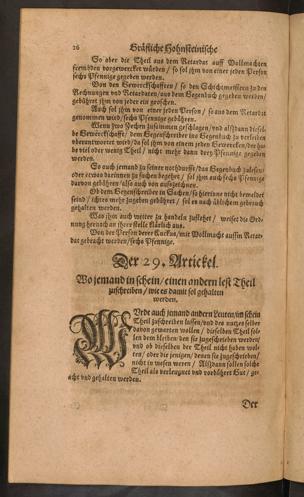 26 Gräfliche Hohnsteinische
So aber die Theil aus dem Retardat auff Vollmachten
frembden vorgewercket würden / so sol ihm von einer jeden Person
sechs Pfennige gegeben werden.
Von den Gewerckschafften / so den Schichtmeistern zu den
Rechnungen und Retardaten / aus dem Gegenbuch gegeben werden /
gebühret ihm von jeder ein groschen.
Auch sol ihm von einer jeden Person / so aus dem Retardat
genommen wird / sechs Pfennige gebühren.
Wenn zwo Zechen zusammen geschlagen / und alßdann dieselbe
Gewerckschafft / dem Gegenschreiber ins Gegenbuch zu vorleiben
uberantwortet wird / da sol ihm von einem jeden Gewercken / der hab
viel oder wenig Theil / nicht mehr dann drey Pfennige gegeben
werden.
So auch jemand zu seiner notdurfft / das Gegenbuch zulesen /
oder etwas darinnen zu suchen begehrt / sol ihm auch sechs Pfennige
davon gebühren / also auch von aufzeichnen.
Ob dem Gegenschreiber in Sachen / so hierinne nicht bemeldet
seind / ichtes mehr zugeben gebühret / sol es nach üblichem gebrauch
gehalten werden.
Was ihm auch weiter zu handeln zustehet / weiset die Ordnung
hernach an ihrer stelle klärlich aus.
Von der Person derer Kuckus / mit Vollmacht auffin Retardat
gebracht werden / sechs Pfennige.
Der 29. Artickel.
Wo jemand in schein / einen andern lest Theil
zuschreiben / wie es damit sol gehalten
werden.
Würde auch jemand andern Leuten / im schein
Theil zuschreiben lassen / und den nutzes selber
davon gewarten wollen / dieselben Theil sollen
dem bleiben / den sie zugeschrieben werden /
und ob dieselben der Theil nicht haben wolten /
oder die jenigen / denen sie zugeschrieben /
nicht in wesen weren / Alßdann sollen solche
Theil als verleugnet und vordühret Gut / geacht
und gehalten werden.
Der